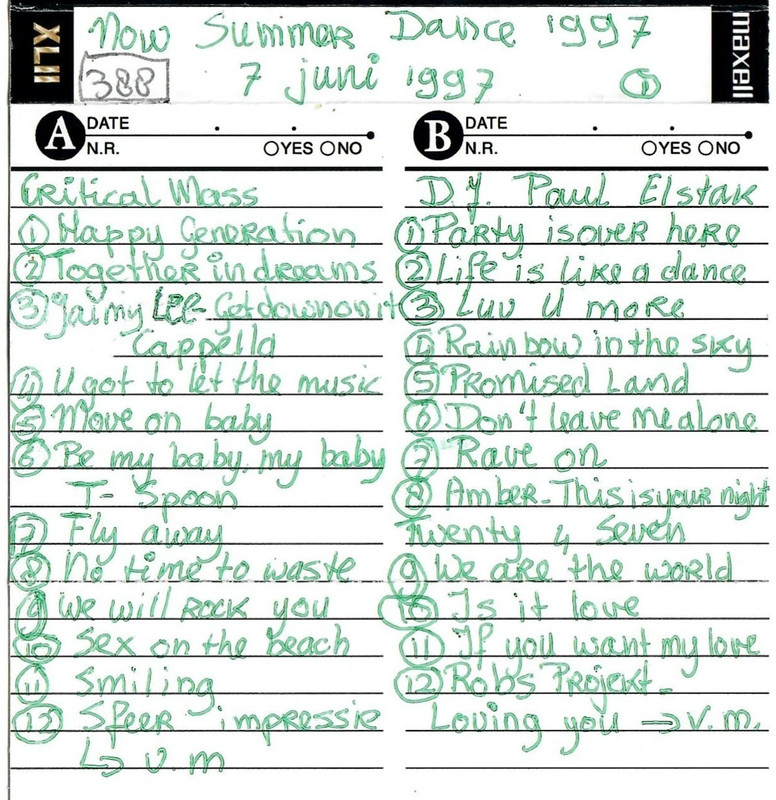 XLII
Now Summer Dance 1997
maxell
388
7 juni 1997
1
A DATE
N.R. YES NO
Critical Mass
1 Happy Generation
2 Together in dreams
3 Jaimy Lee - Get down on it
Cappella
4 U got to let the music
5 Move on baby
6 Be my baby, my baby
T-Spoon
7 Fly away
8 No time to waste
9 We will rock you
10 Sex on the beach
11 Smiling
12 Sfeer impressie
↳ v.m
B DATE
N.R. YES NO
D.J. Paul Elstak
1 Party is over here
2 Life is like a dance
3 Luv U more
4 Rainbow in the sky
5 Promised Land
6 Don't leave me alone
7 Rave on
8 Amber - This is your night
Twenty 4 Seven
9 We are the world
10 Is it love
11 If you want my love
12 Robs Projekt -
Loving you → v.m.